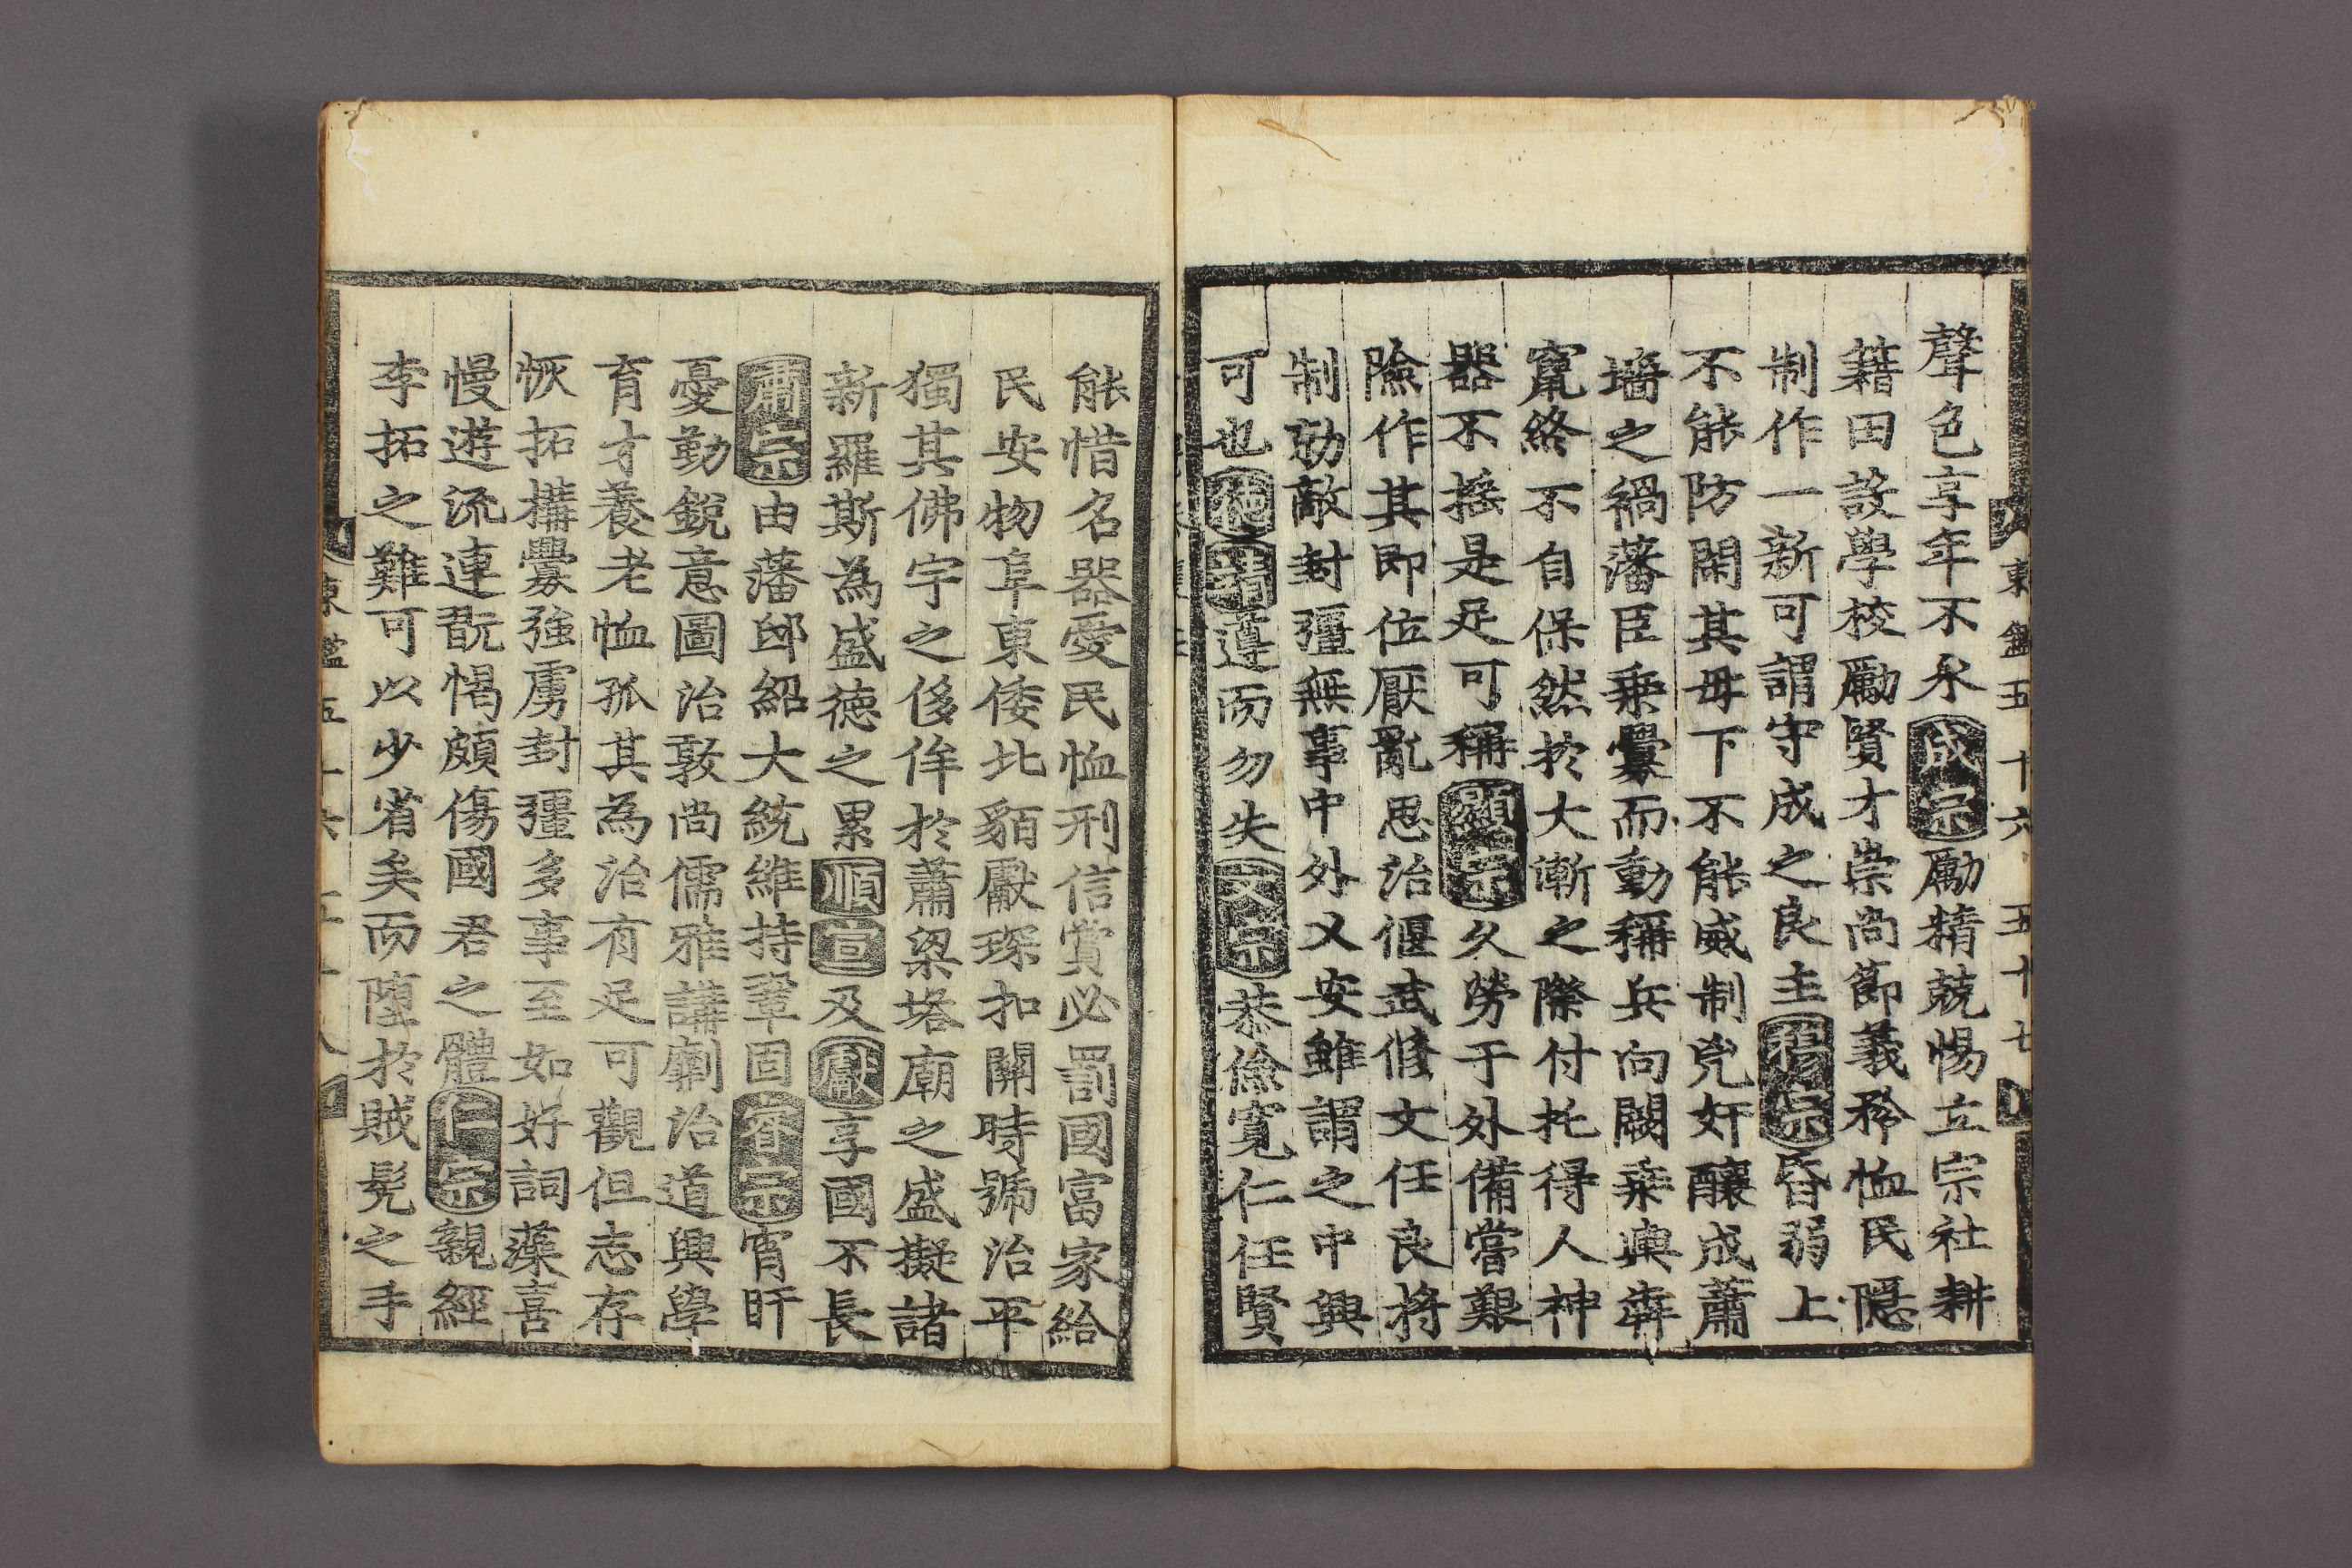 東鑑五十六 五十七
聲色享年不永成宗勵精兢惕立宗社耕
籍田設學校勵賢才崇尚節義矜恤民隱
制作一新可謂守成之良主穆宗昏弱上
不能防閑其母下不能威制兇奸釀成蕭
墻之禍藩臣乘釁而動稱兵向闕乘輿奔
竄終不自保然於大漸之際付托得人神
器不搖是足可稱顯宗久勞于外備嘗艱
險作其即位厭亂思治偃武修文任良將
制勁敵封疆無事中外乂安雖謂之中興
可也德靖遵而勿失文宗恭儉寬仁任賢
能惜名器愛民恤刑信賞必罰國富家給
民安物阜東倭北貊獻琛扣關時號治平
獨其佛宇之侈侔於蕭梁塔廟之盛擬諸
新羅斯為盛德之累順宣及獻享國不長
肅宗由藩邸紹大統維持鞏固睿宗宵旰
憂勤銳意圖治敦尚儒雅講劘治道興學
育才養老恤孤其為治有足可觀但志存
恢拓搆釁強虜封疆多事至如好詞藻喜
慢遊流連翫愒頗傷國君之體仁宗親經
李拓之難可以少省矣而墮於賊髡之手